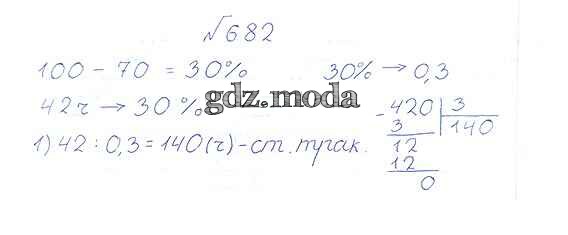 №682
100 - 70 = 30%   30% → 0,3
42г → 30%
gdz.moda
1) 42 : 0,3 = 140 (г) - ст. трак.
- 420 | 3
3 | 140
12
12
0